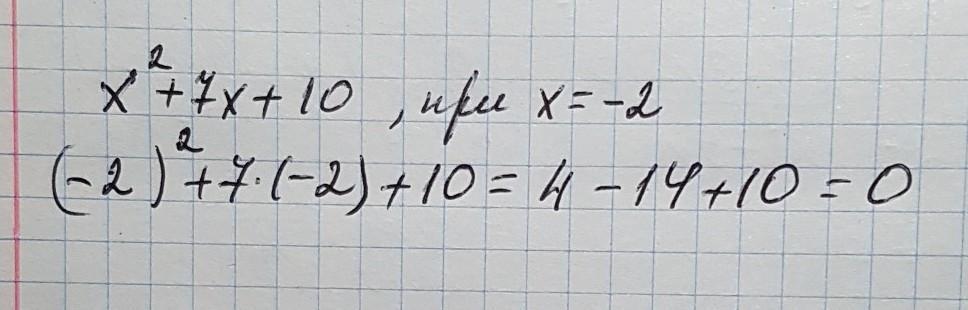 x² + 7x + 10 , при x = -2
(-2)² + 7·(-2) + 10 = 4 - 14 + 10 = 0